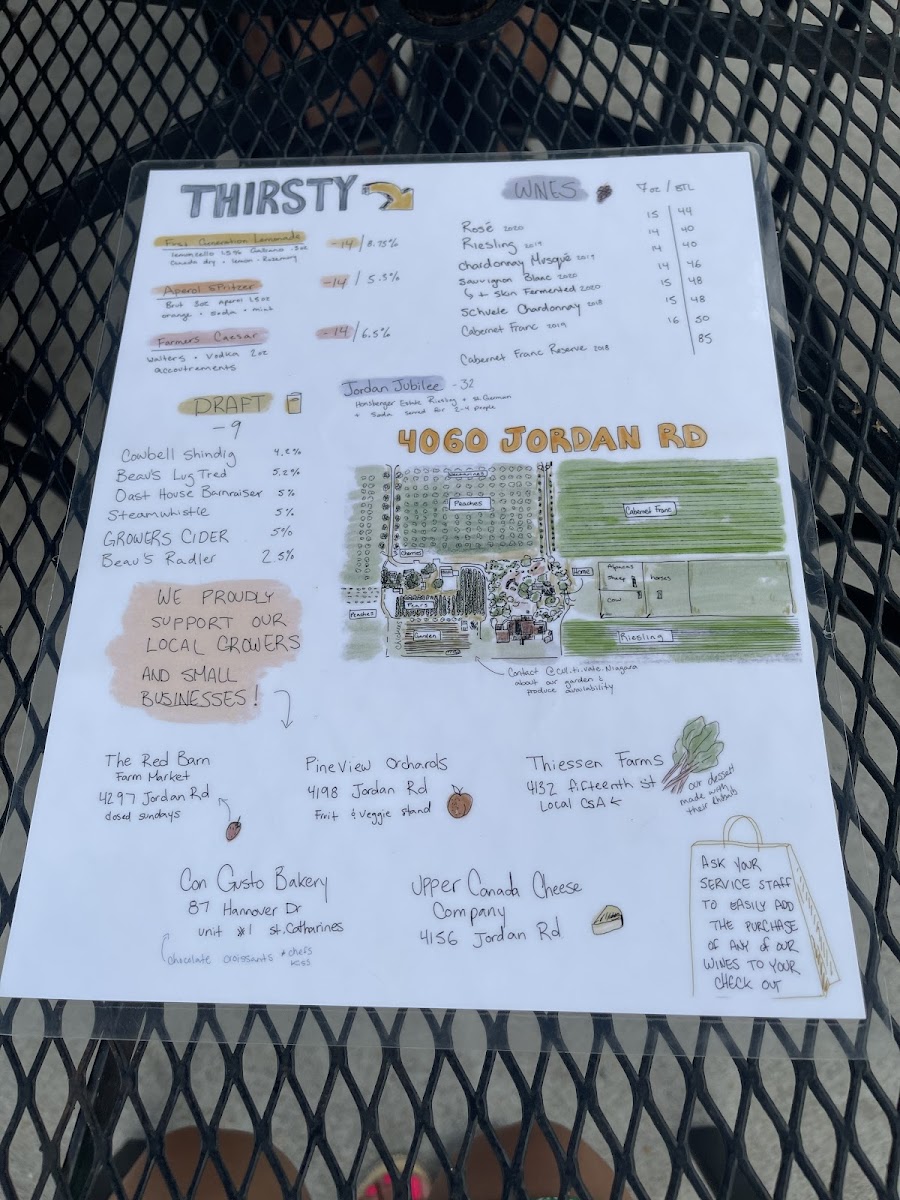 THIRSTY
First Generation Lemonade -14 / 8.75%
Canada dry + lemon - Rosemary
Aperol Spritzer -14 / 5.5%
Brut 3oz Aperol 1.5oz
orange + soda + mint
Farmers Caesar -14 / 6.5%
walters + vodka 2oz
accoutrements
WINES 7oz / BTL
Rosé 2020 15 44
Riesling 2019 14 40
Chardonnay Musqué 2019 14 40
Sauvignon Blanc 2020 14 46
↳ + Skin Fermented 2020 15 48
Schuele Chardonnay 2018 15 48
Cabernet Franc 2019 16 50
Cabernet Franc Reserve 2018 85
Jordan Jubilee - 32
Honsberger Estate Riesling + St. Germain
+ Soda served for 2-4 people
DRAFT
- 9
Cowbell Shindig 4.2%
Beau's Lug Tred 5.2%
Oast House Barnraiser 5%
Steamwhistle 5%
GROWERS CIDER 5%
Beau's Radler 2.5%
4060 JORDAN RD
Peaches
Cabernet Franc
Cherries
Home
Alpacas
Sheep
horses
Cow
Pears
Peaches
Garden
Riesling
Contact @cul.ti.vate.Niagara
about our garden &
produce availability
WE PROUDLY
SUPPORT OUR
LOCAL GROWERS
AND SMALL
BUSINESSES!
The Red Barn
Farm Market
4297 Jordan Rd
closed Sundays
Pineview Orchards
4198 Jordan Rd
Fruit & Veggie stand
Thiessen Farms
4132 fifteenth St
Local CSA
our dessert
made with
their rhubarb
Con Gusto Bakery
87 Hannover Dr
unit #1 St. Catharines
chocolate croissants * chefs
kiss
Upper Canada Cheese
Company
4156 Jordan Rd
ASK YOUR
SERVICE STAFF
TO EASILY ADD
THE PURCHASE
OF ANY OF OUR
WINES TO YOUR
CHECK OUT